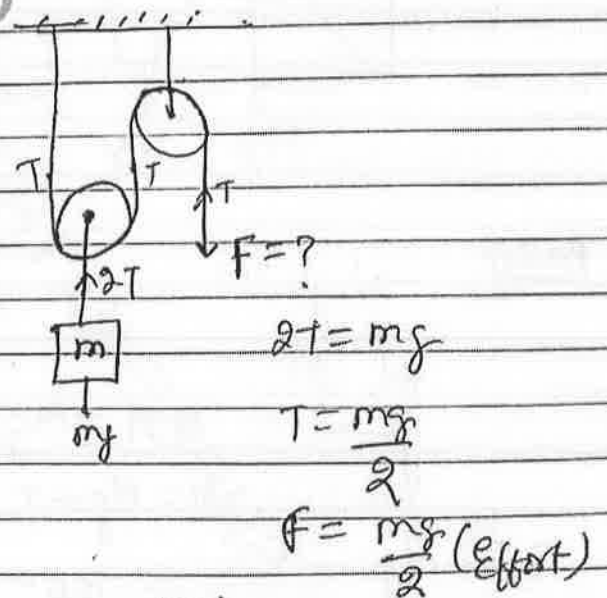 T
T
T
F = ?
2T
m
mg
2T = mg
T = mg/2
F = mg/2 (Effort)